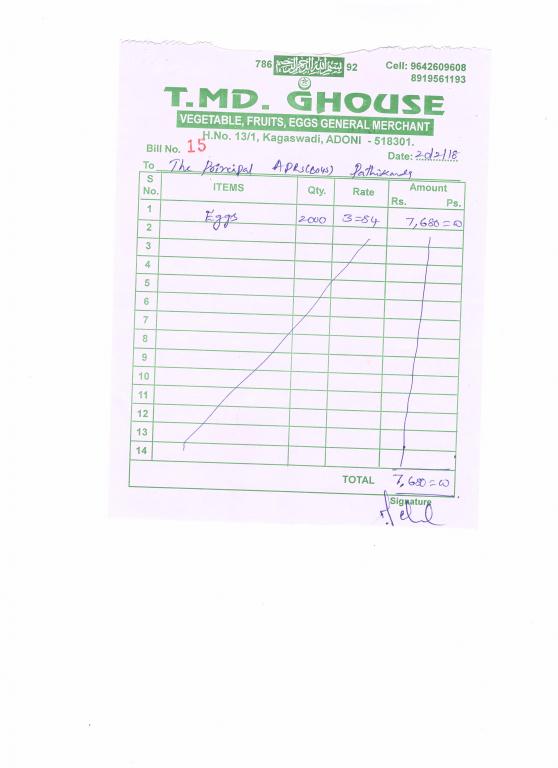 786 بسم الله الرحمن الرحيم 92
Cell: 9642609608
8919561193
T.MD. GHOUSE
VEGETABLE, FRUITS, EGGS GENERAL MERCHANT
H.No. 13/1, Kagaswadi, ADONI - 518301.
Bill No. 15
Date: 20/2/18
To The Principal APRS(Boys)
S No. ITEMS Qty. Rate Amount Rs. Ps.
1 Eggs 2000 3=84 7,680=00
2
3
4
5
6
7
8
9
10
11
12
13
14
TOTAL 7,680=00
Signature